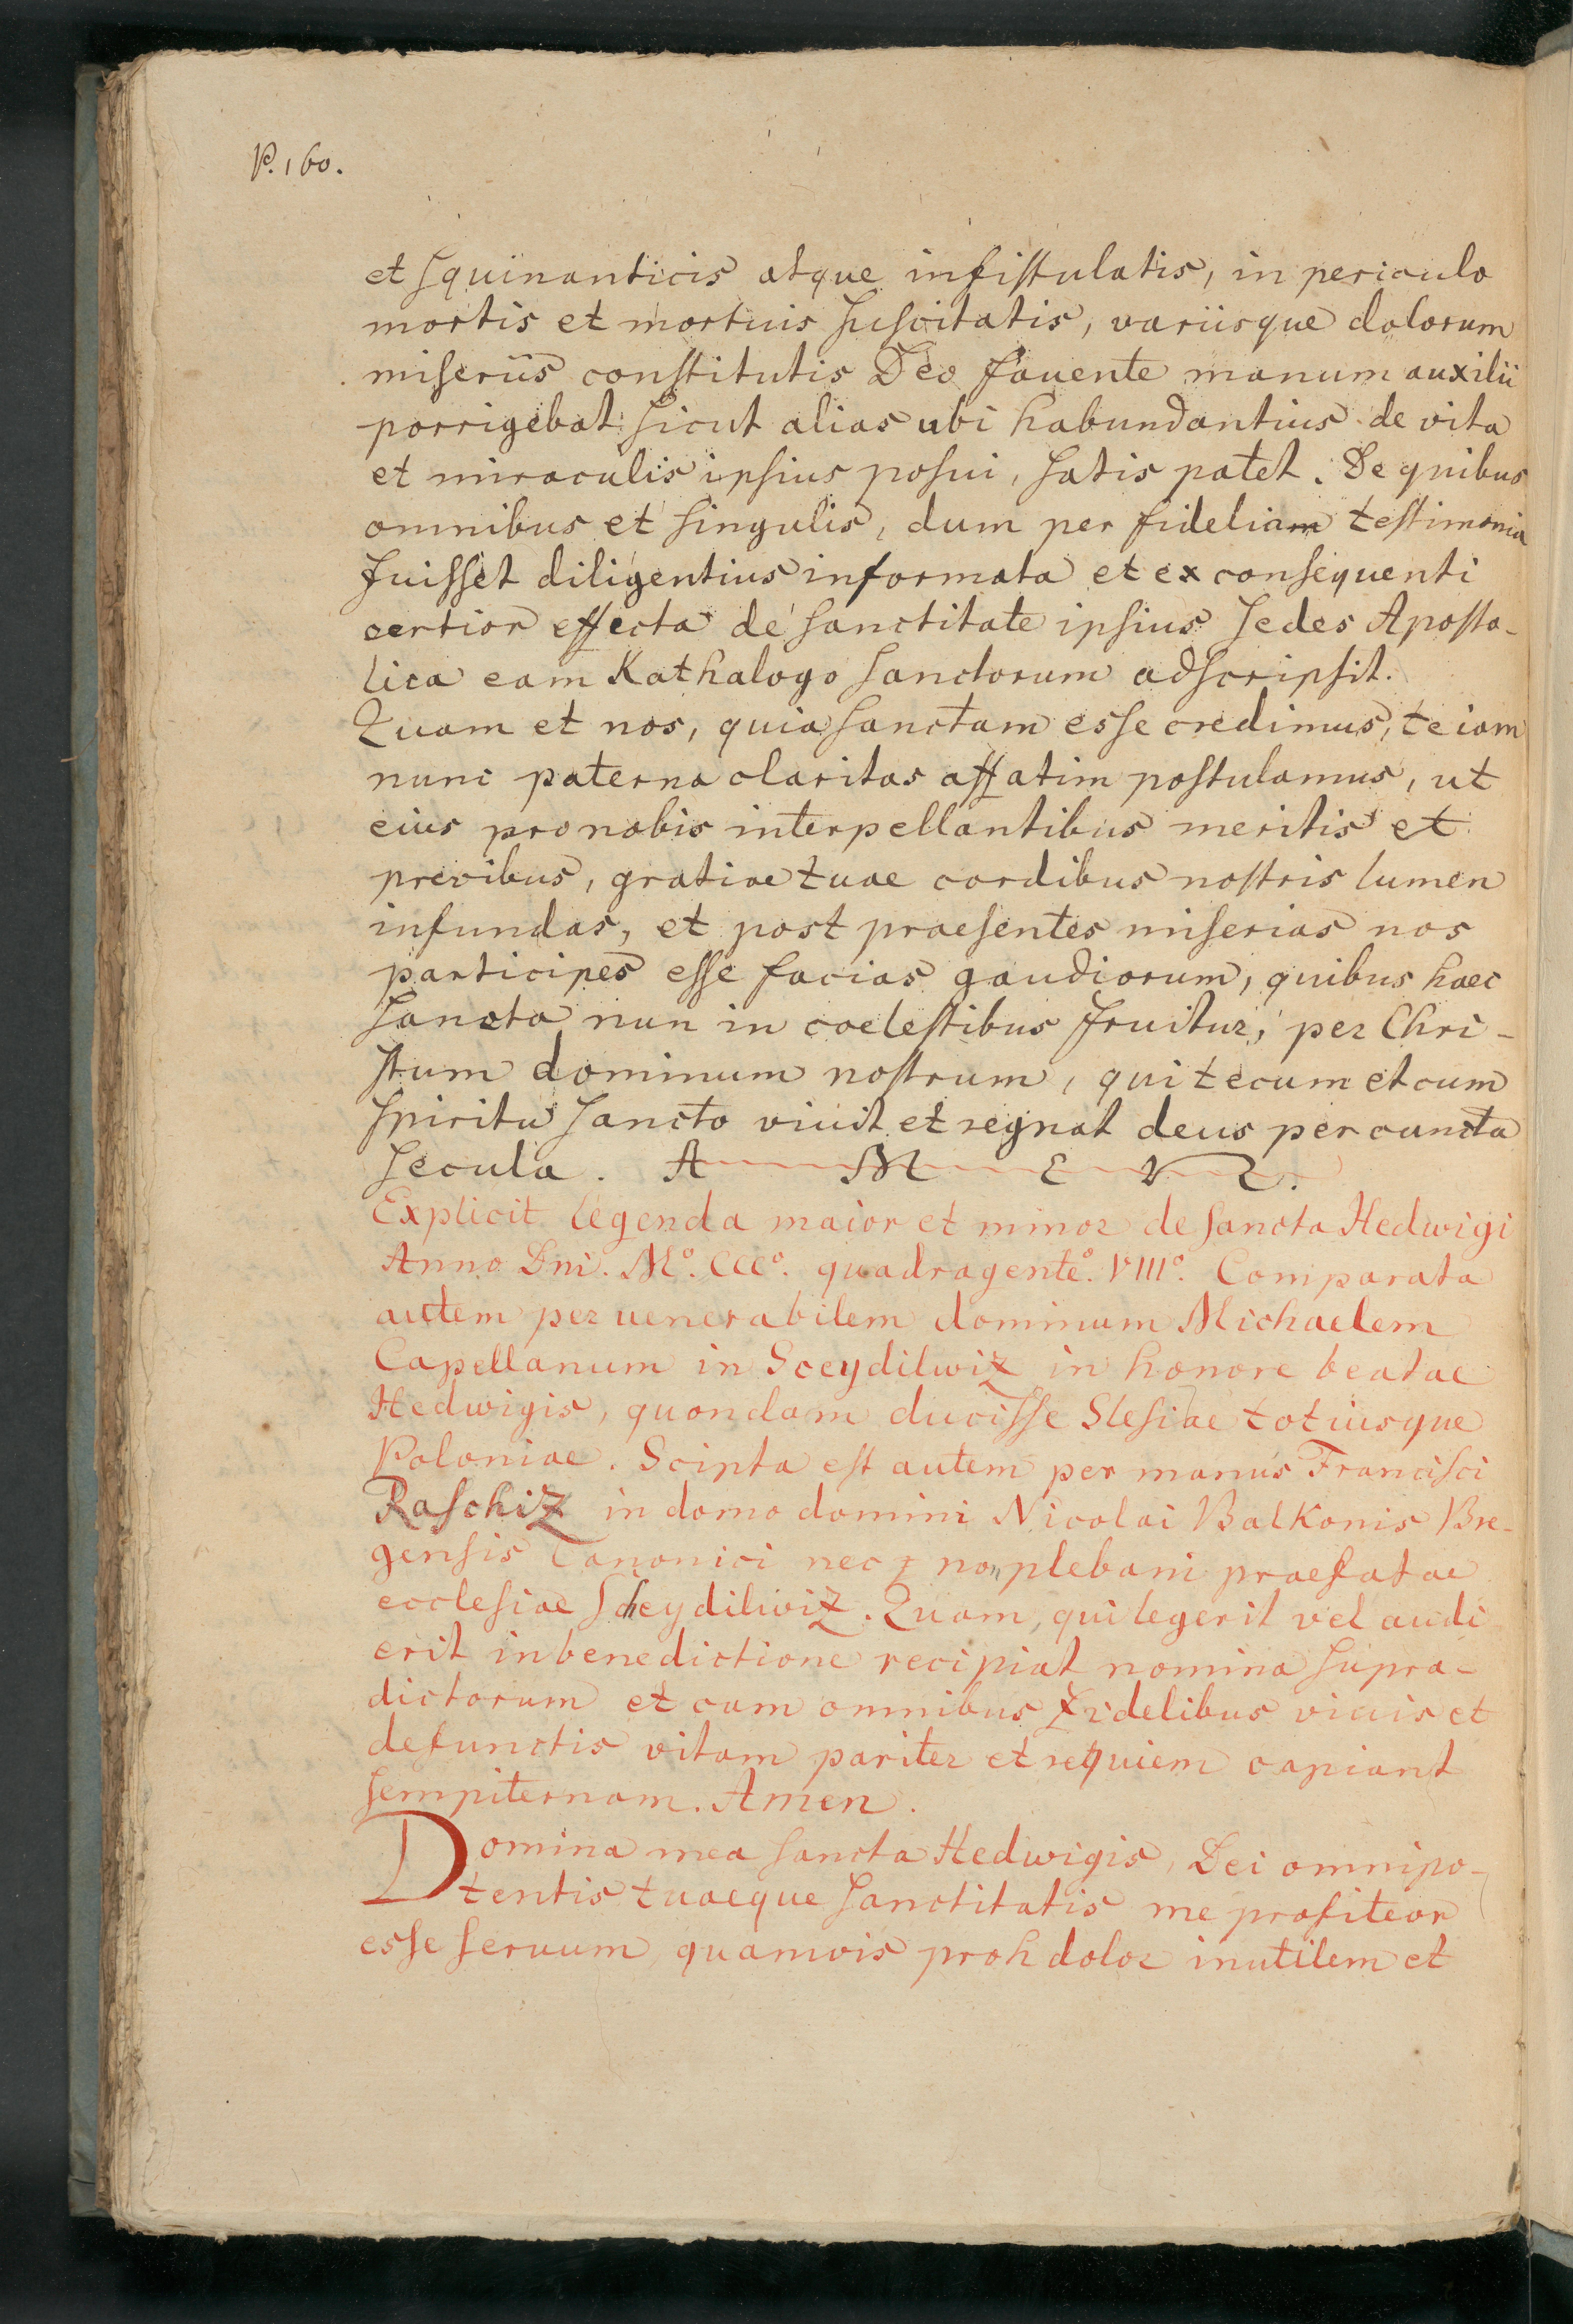 P. 160.
et squinanticis atque infistulatis, in periculo
mortis et mortuis suscitatis, variisque dolorum
miseriis constitutis Deo fauente manum auxilii
porrigebat sicut alias ubi habundantius de vita
et miraculis ipsius posui, satis patet. De quibus
omnibus et singulis, dum per fideliam testimonia
fuisset diligentius informata et ex consequenti
certior effecta de sanctitate ipsius sedes Aposto-
lica eam Kathalogo sanctorum adscripsit.
Quam et nos, quia sanctam esse credimus, te iam
nunc paterna claritas affatim postulamus, ut
eius pro nobis interpellantibus meritis et
precibus, gratiae tuae cordibus nostris lumen
infundas, et post praesentes miserias nos
participes esse facias gaudiorum, quibus haec
sancta nun in coelestibus fruitur, per Chri-
stum dominum nostrum, qui tecum et cum
spiritu sancto viuit et regnat deus per cuncta
secula. A M E N.
Explicit legenda maior et minor de sancta Hedwigi
Anno Dni. Mº. CCCº. quadragenteº. VIIIº. Comparata
autem per uenerabilem dominum Michaelem
Capellanum in Sceydilwiz in honore beatae
Hedwigis, quondam ducisse Slesiae totiusque
Poloniae. Scipta est autem per manus Francisci
Raschiz in domo domini Nicolai Balkonis Bre-
gensis Canonici nec non plebani praefatae
ecclesiae Scheydilwiz. Quam, qui legerit vel audi
erit in benedictione recipiat nomina supra-
dictorum et cum omnibus fidelibus viuis et
defunctis vitam pariter et requiem capiant
sempiternam. Amen.
Domina mea sancta Hedwigis, Dei omnipo-
tentis tuaeque sanctitatis me profiteor
esse seruum, quamvis proh dolor inutilem et